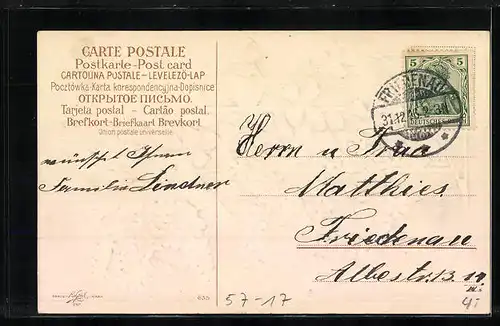 CARTE POSTALE
Postkarte-Post card
CARTOLINA POSTALE-LEVELEZÖ-LAP
Pocztówka-Karta korespondencyjna-Dopisnice
ОТКРЫТОЕ ПИСЬМО.
Tarjeta postal - Cartão postal.
Brefkort-Briefkaart Brevkort.
Union postale universelle
wünscht Ihnen
Familie Lindner
5 5
FRIEDENAU
31.12.
Herrn u Frau
Matthies
Friedenau
Albestr. 13.
635
57-17